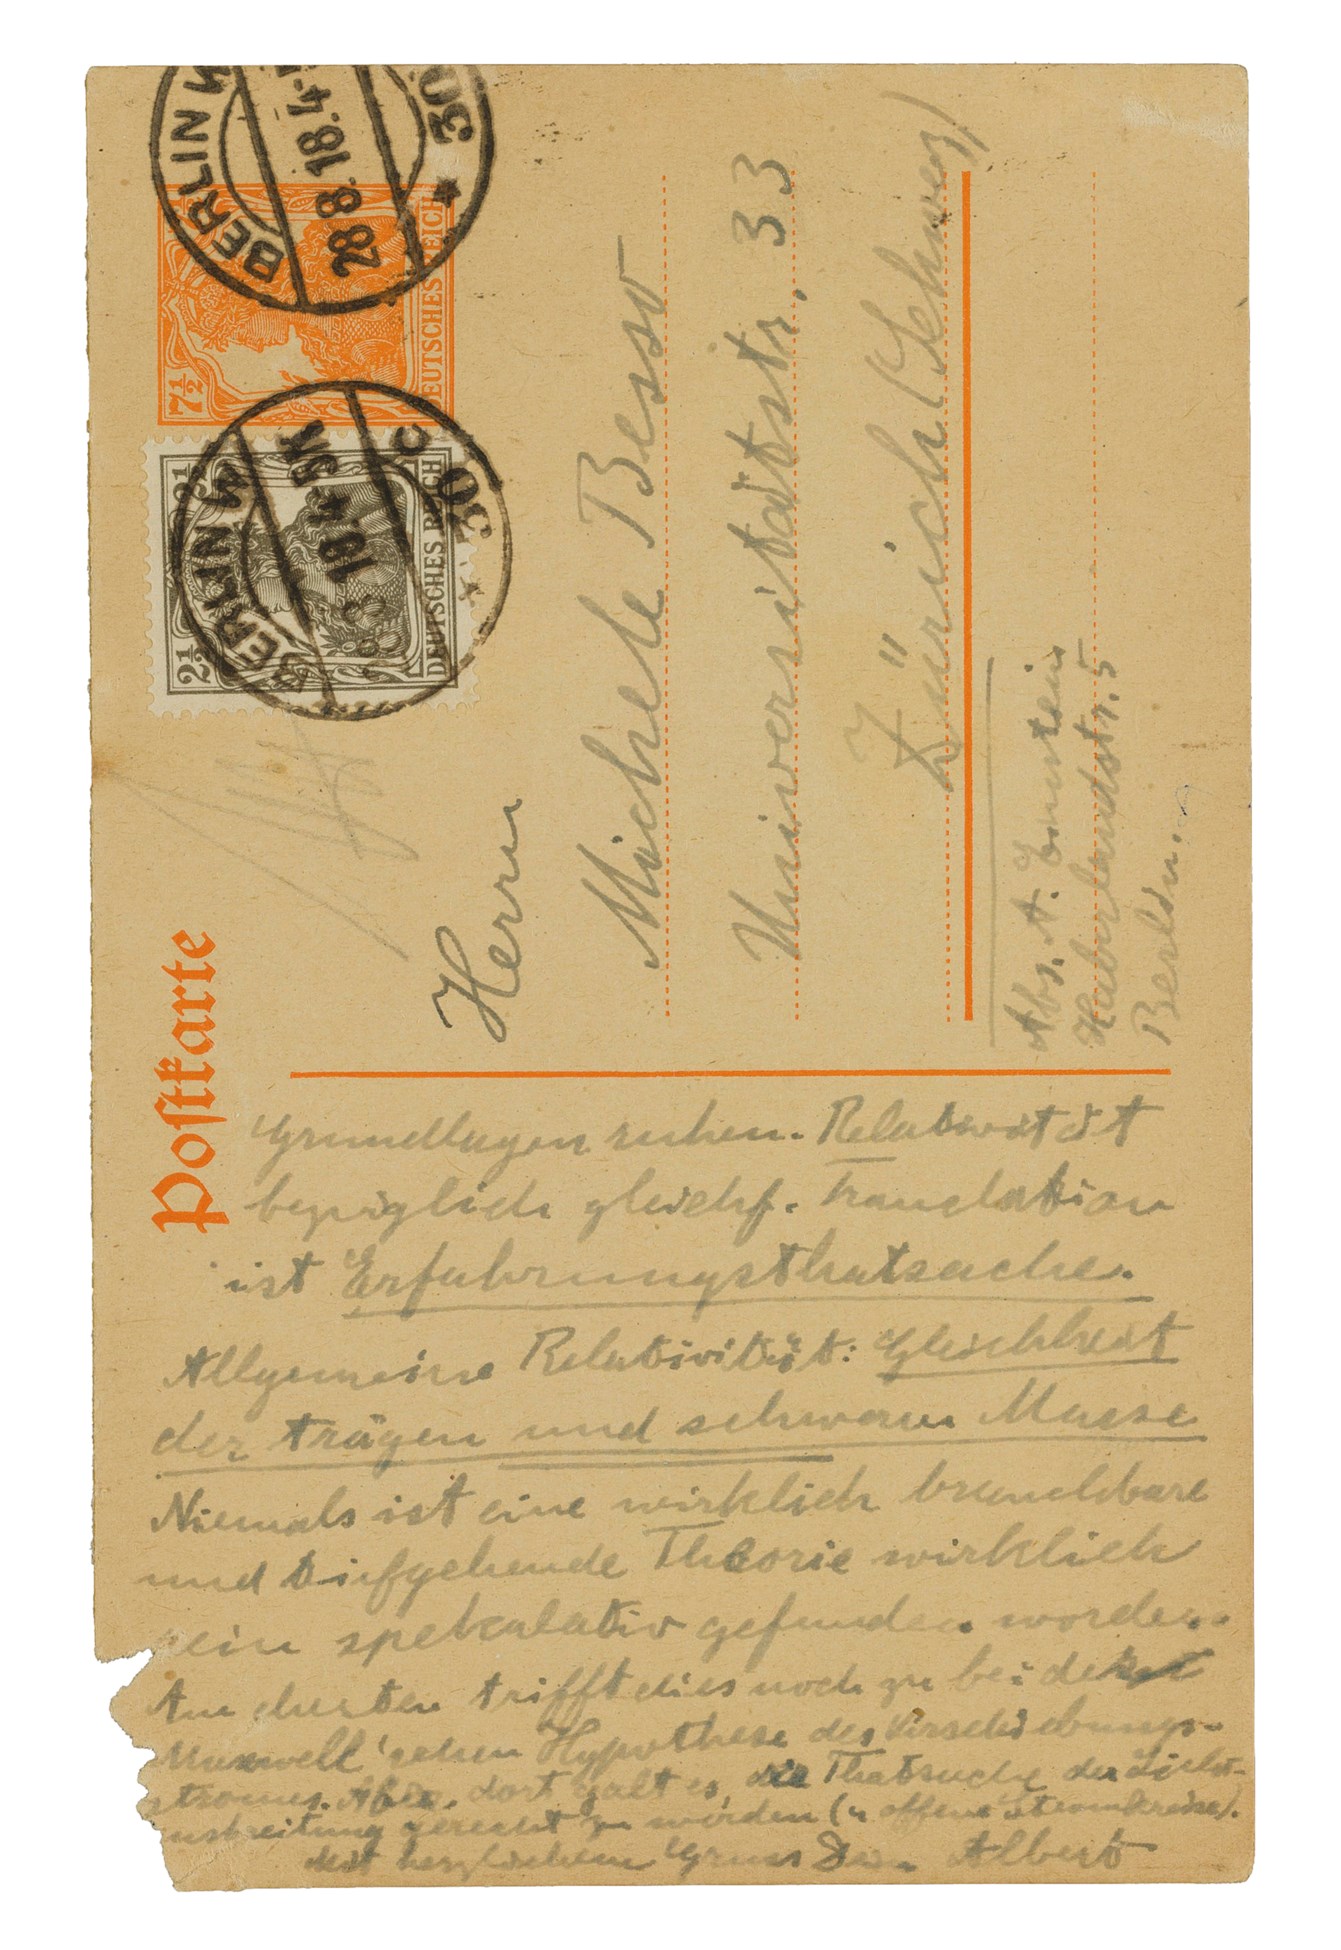 Postkarte
BERLIN W
28.8.18.4-
30
7½
DEUTSCHES REICH
BERLIN W
8.18.4-5N
30
C
2½
2½
DEUTSCHES REICH
Herrn
Michele Besso
Universitätstr. 33
Zürich (Schweiz)
Abs. A. Einstein
Haberlandstr. 5
Berlin.
Grundlagen ruhen. Relativität
bezüglich gleichf. Translation
ist Erfahrungsthatsache.
Allgemeine Relativität: Gleichheit
der trägen und schweren Masse
Niemals ist eine wirklich brauchbare
und tiefgehende Theorie wirklich
rein spekulativ gefunden worden.
Am ehesten trifft dies noch zu bei der
Maxwell'schen Hypothese des Verschiebungs-
stromes. Aber dort galt es, die Thatsache der Licht-
ausbreitung gerecht zu werden (u offene Stromkreise).
Mit herzlichem Gruss Dein Albert